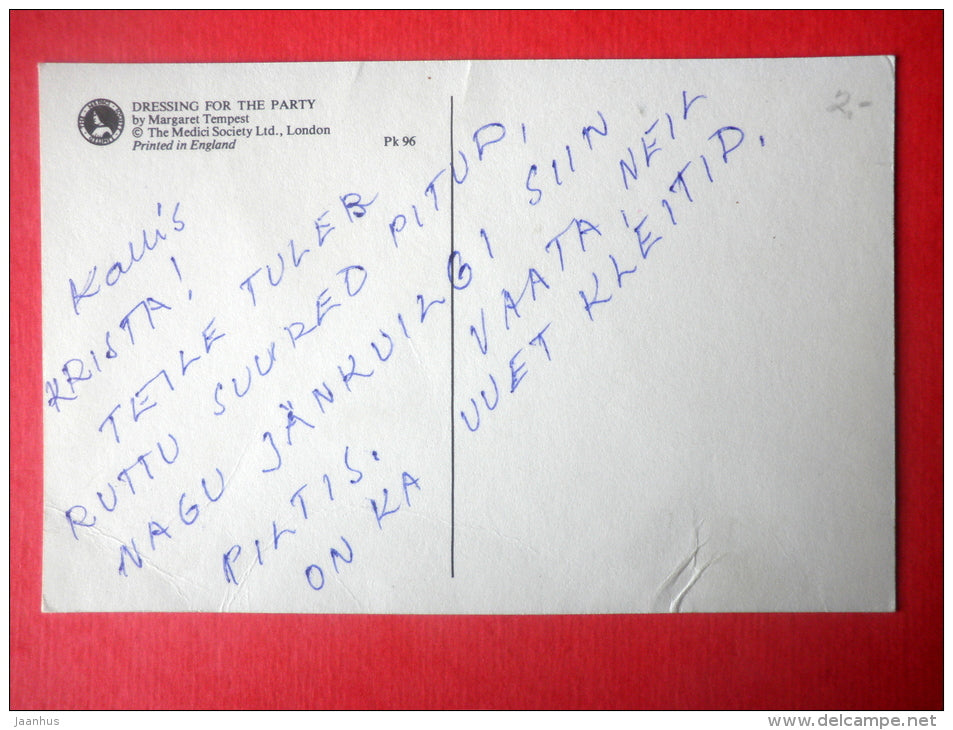 DRESSING FOR THE PARTY
by Margaret Tempest
© The Medici Society Ltd., London
Printed in England
Pk 96
2.-
Kallis
KRISTA!
TEILE TULEB
RUTTU SUURED PITUD,
NAGU JÄNKUILGI SIIN
PILTIS. VAATA, NEIL
ON KA UUET KLEITID.
Jaanhus
www.delcampe.net